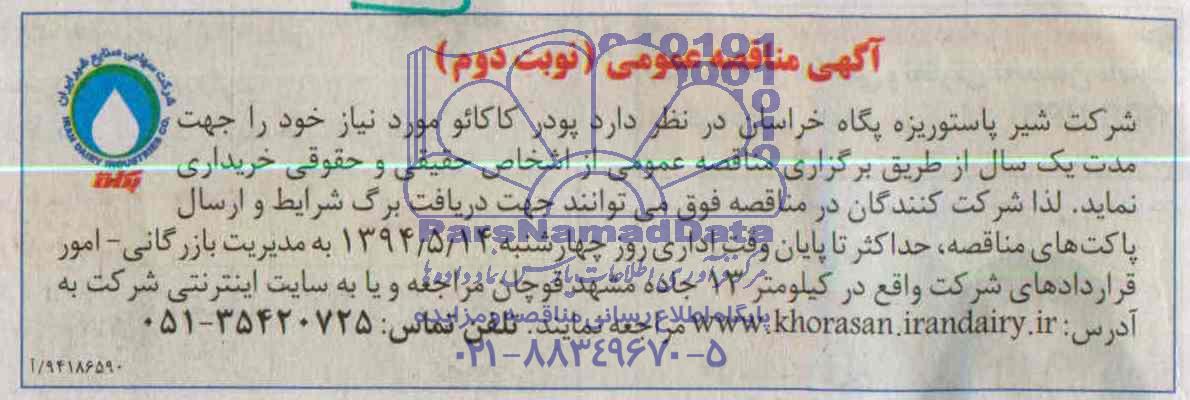 آگهی مناقصه عمومی (نوبت دوم)
شرکت سهامی صنایع شیر ایران
IRAN DAIRY INDUSTRIES CO.
پگاه
شرکت شیر پاستوریزه پگاه خراسان در نظر دارد پودر کاکائو مورد نیاز خود را جهت
مدت یک سال از طریق برگزاری مناقصه عمومی از اشخاص حقیقی و حقوقی خریداری
نماید. لذا شرکت کنندگان در مناقصه فوق می توانند جهت دریافت برگ شرایط و ارسال
پاکت‌های مناقصه، حداکثر تا پایان وقت اداری روز چهارشنبه ۱۳۹۴/۵/۱۴ به مدیریت بازرگانی- امور
قراردادهای شرکت واقع در کیلومتر ۱۳ جاده مشهد قوچان مراجعه و یا به سایت اینترنتی شرکت به
آدرس: www.khorasan.irandairy.ir مراجعه نمایند. تلفن تماس: ۳۵۴۲۰۷۲۵-۰۵۱
۹۴۱۸۶۵۹۰/آ
ParsNamadData
مرکز فرآوری اطلاعات پارس نماد داده‌ها
پایگاه اطلاع رسانی مناقصه و مزایده
۰۲۱-۸۸۳۴۹۶۷۰-۵